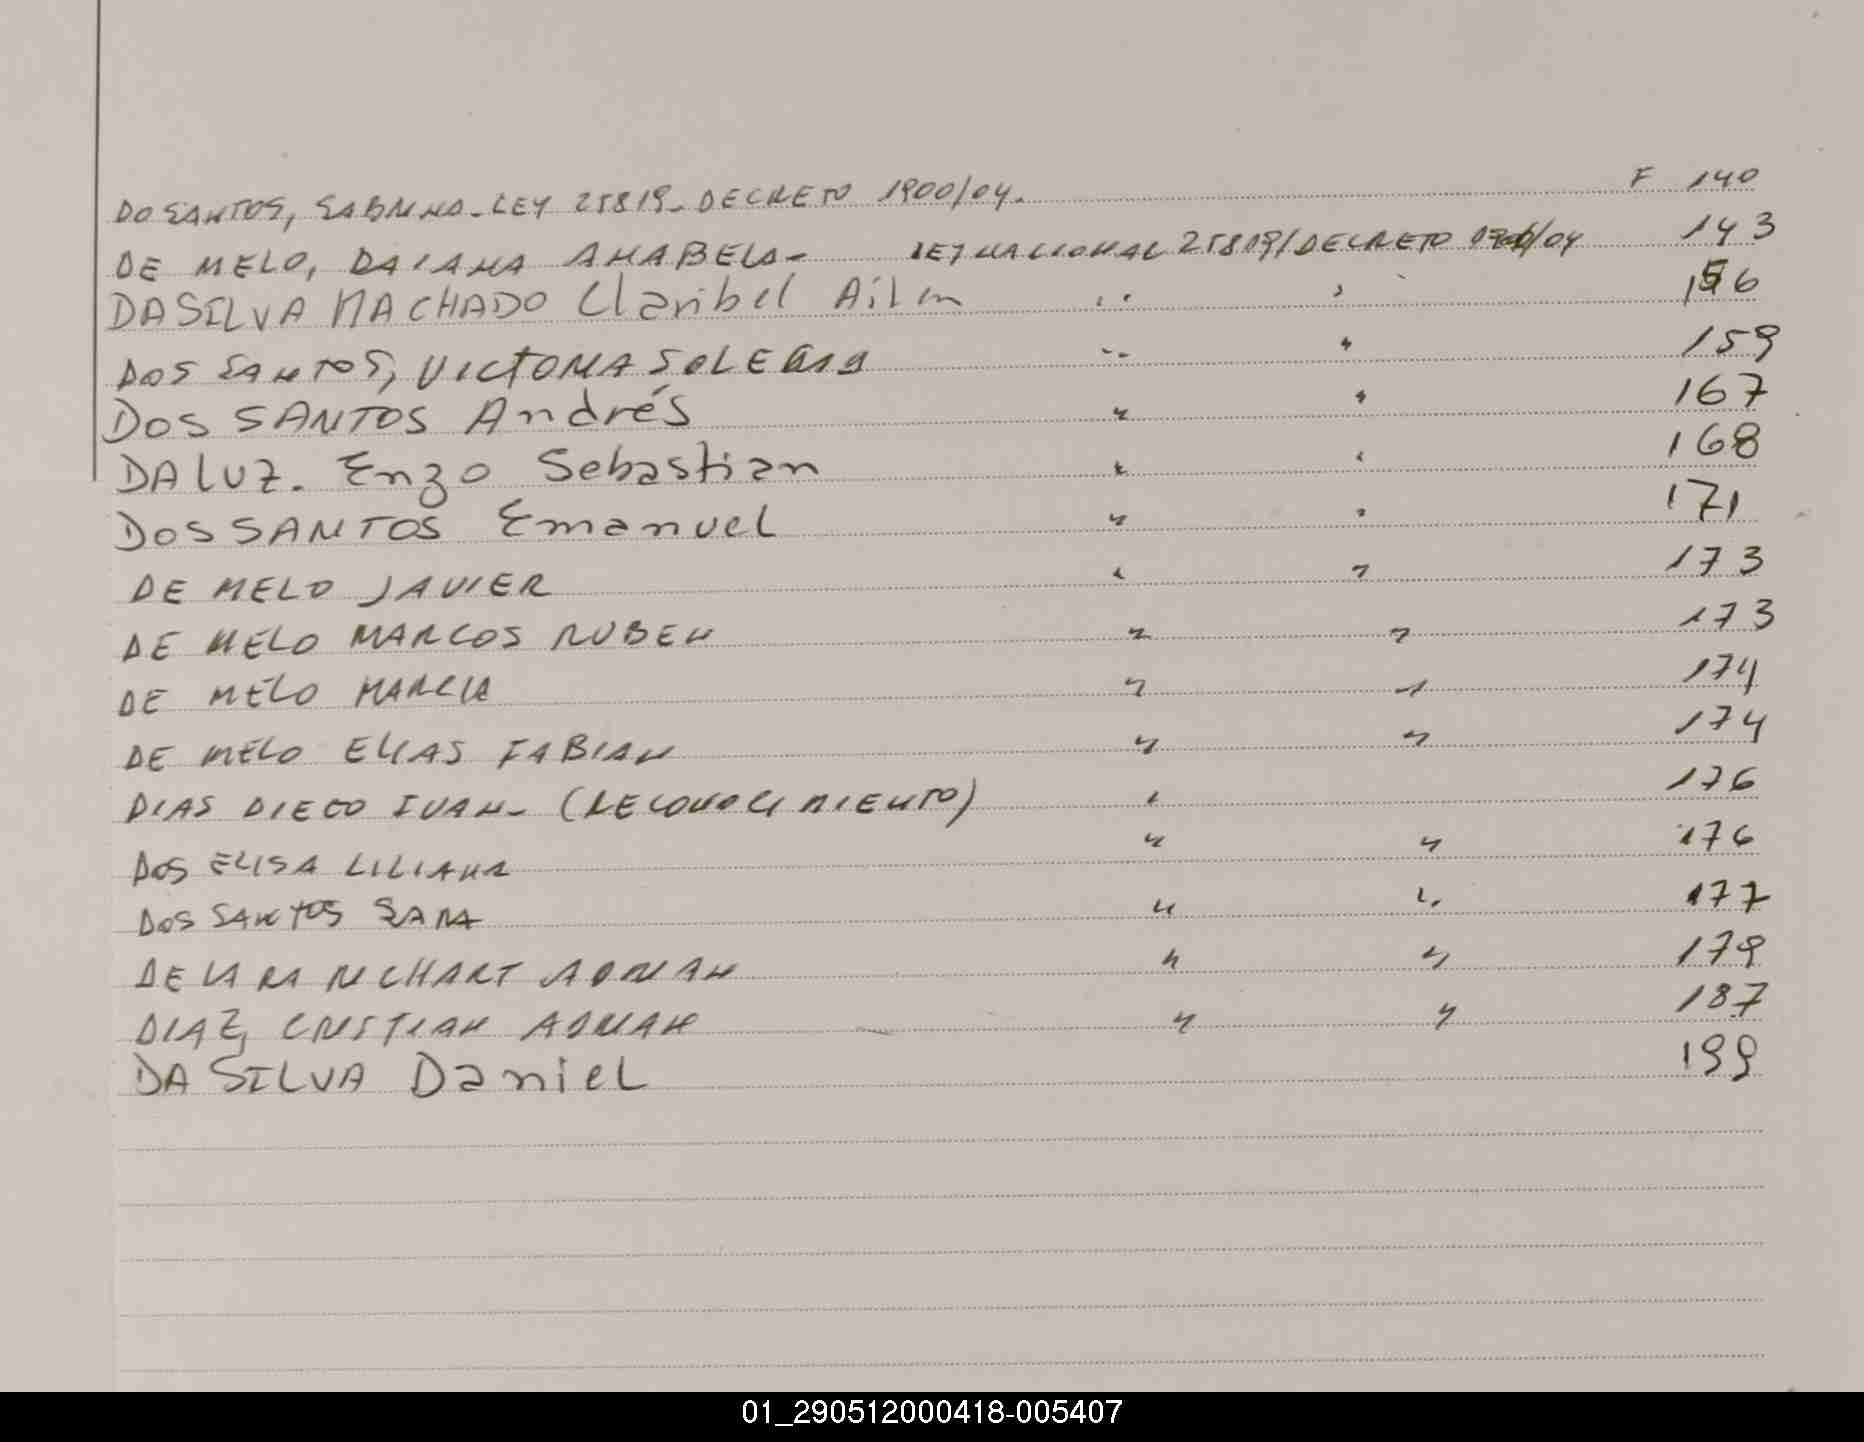 DO SANTOS, SABRINA - LEY 25819 - DECRETO 1900/04. F 140
DE MELO, DAIANA ANABELA - LEY NACIONAL 25819/DECRETO 1900/04 143
DA SILVA MACHADO Claribel Ailen " " 156
DOS SANTOS, VICTORIA SOLEDAD " " 159
DOS SANTOS Andrés " " 167
DA LUZ. Enzo Sebastian " " 168
DOS SANTOS Emanuel " " 171
DE MELO JAVIER " " 173
DE MELO MARCOS RUBEN " " 173
DE MELO MARCIA " " 174
DE MELO ELIAS FABIAN " " 174
DIAS DIEGO IVAN - (RECONOCIMIENTO) " 176
DOS ELISA LILIANA " " 176
DOS SANTOS SARA " " 177
DE LARA RICHART ADRIAN " " 179
DIAZ, CRISTIAN ADRIAN " " 187
DA SILVA Daniel 199
01_290512000418-005407